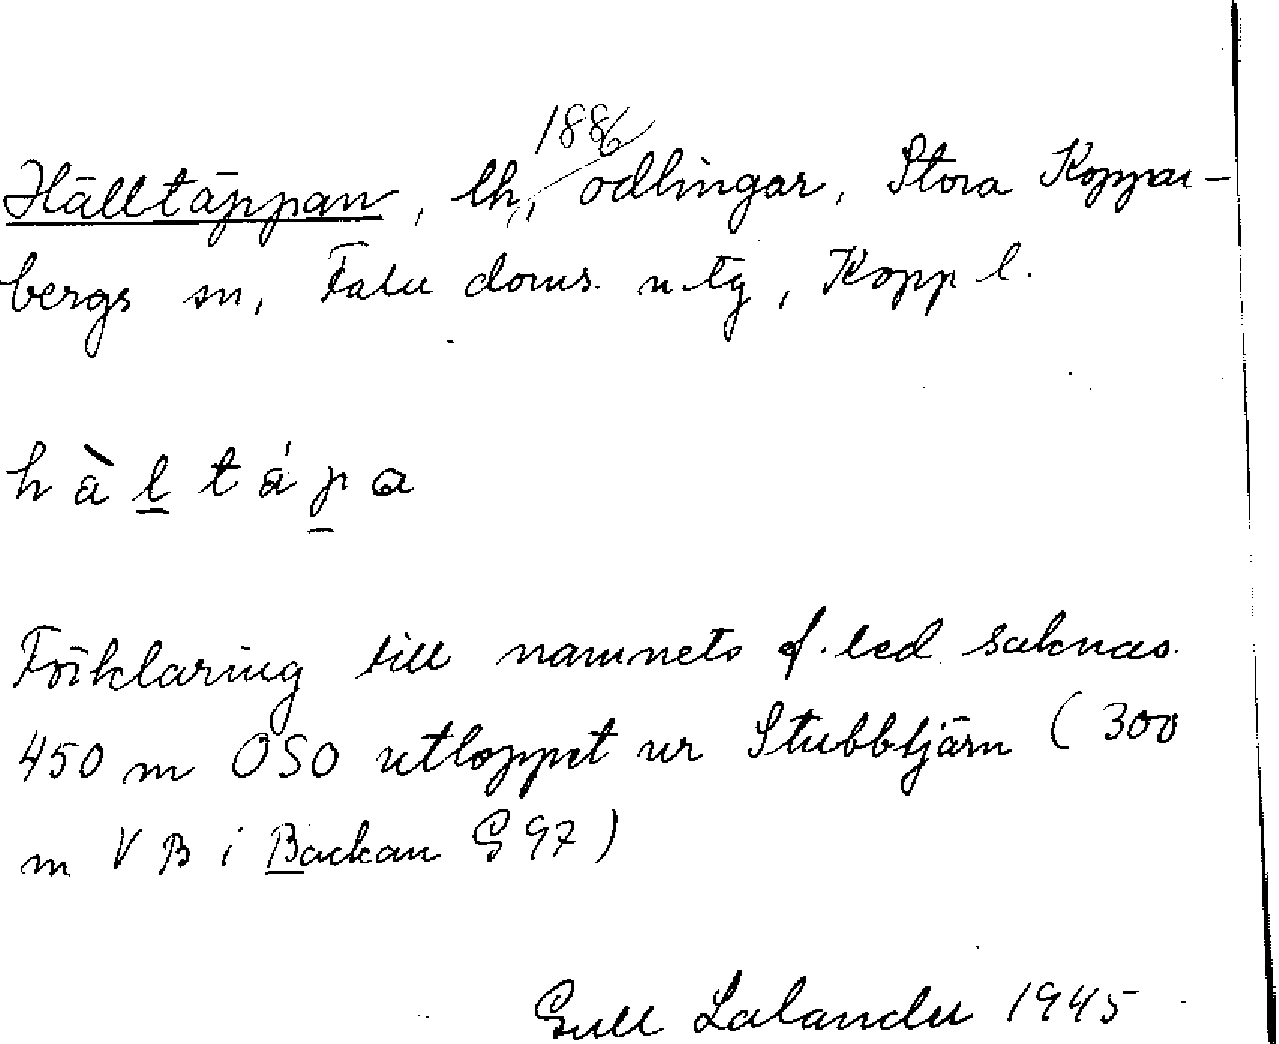 1886
Hälltäppan, lh, odlingar, Stora Koppar-
bergs sn, Falu doms. n tg, Kopp l.
h à l t á p a
Förklaring till namnets f. led saknas.
450 m OSO utloppet ur Stubbtjärn (300
m V B i Backan G 97)
Gull Lalander 1945